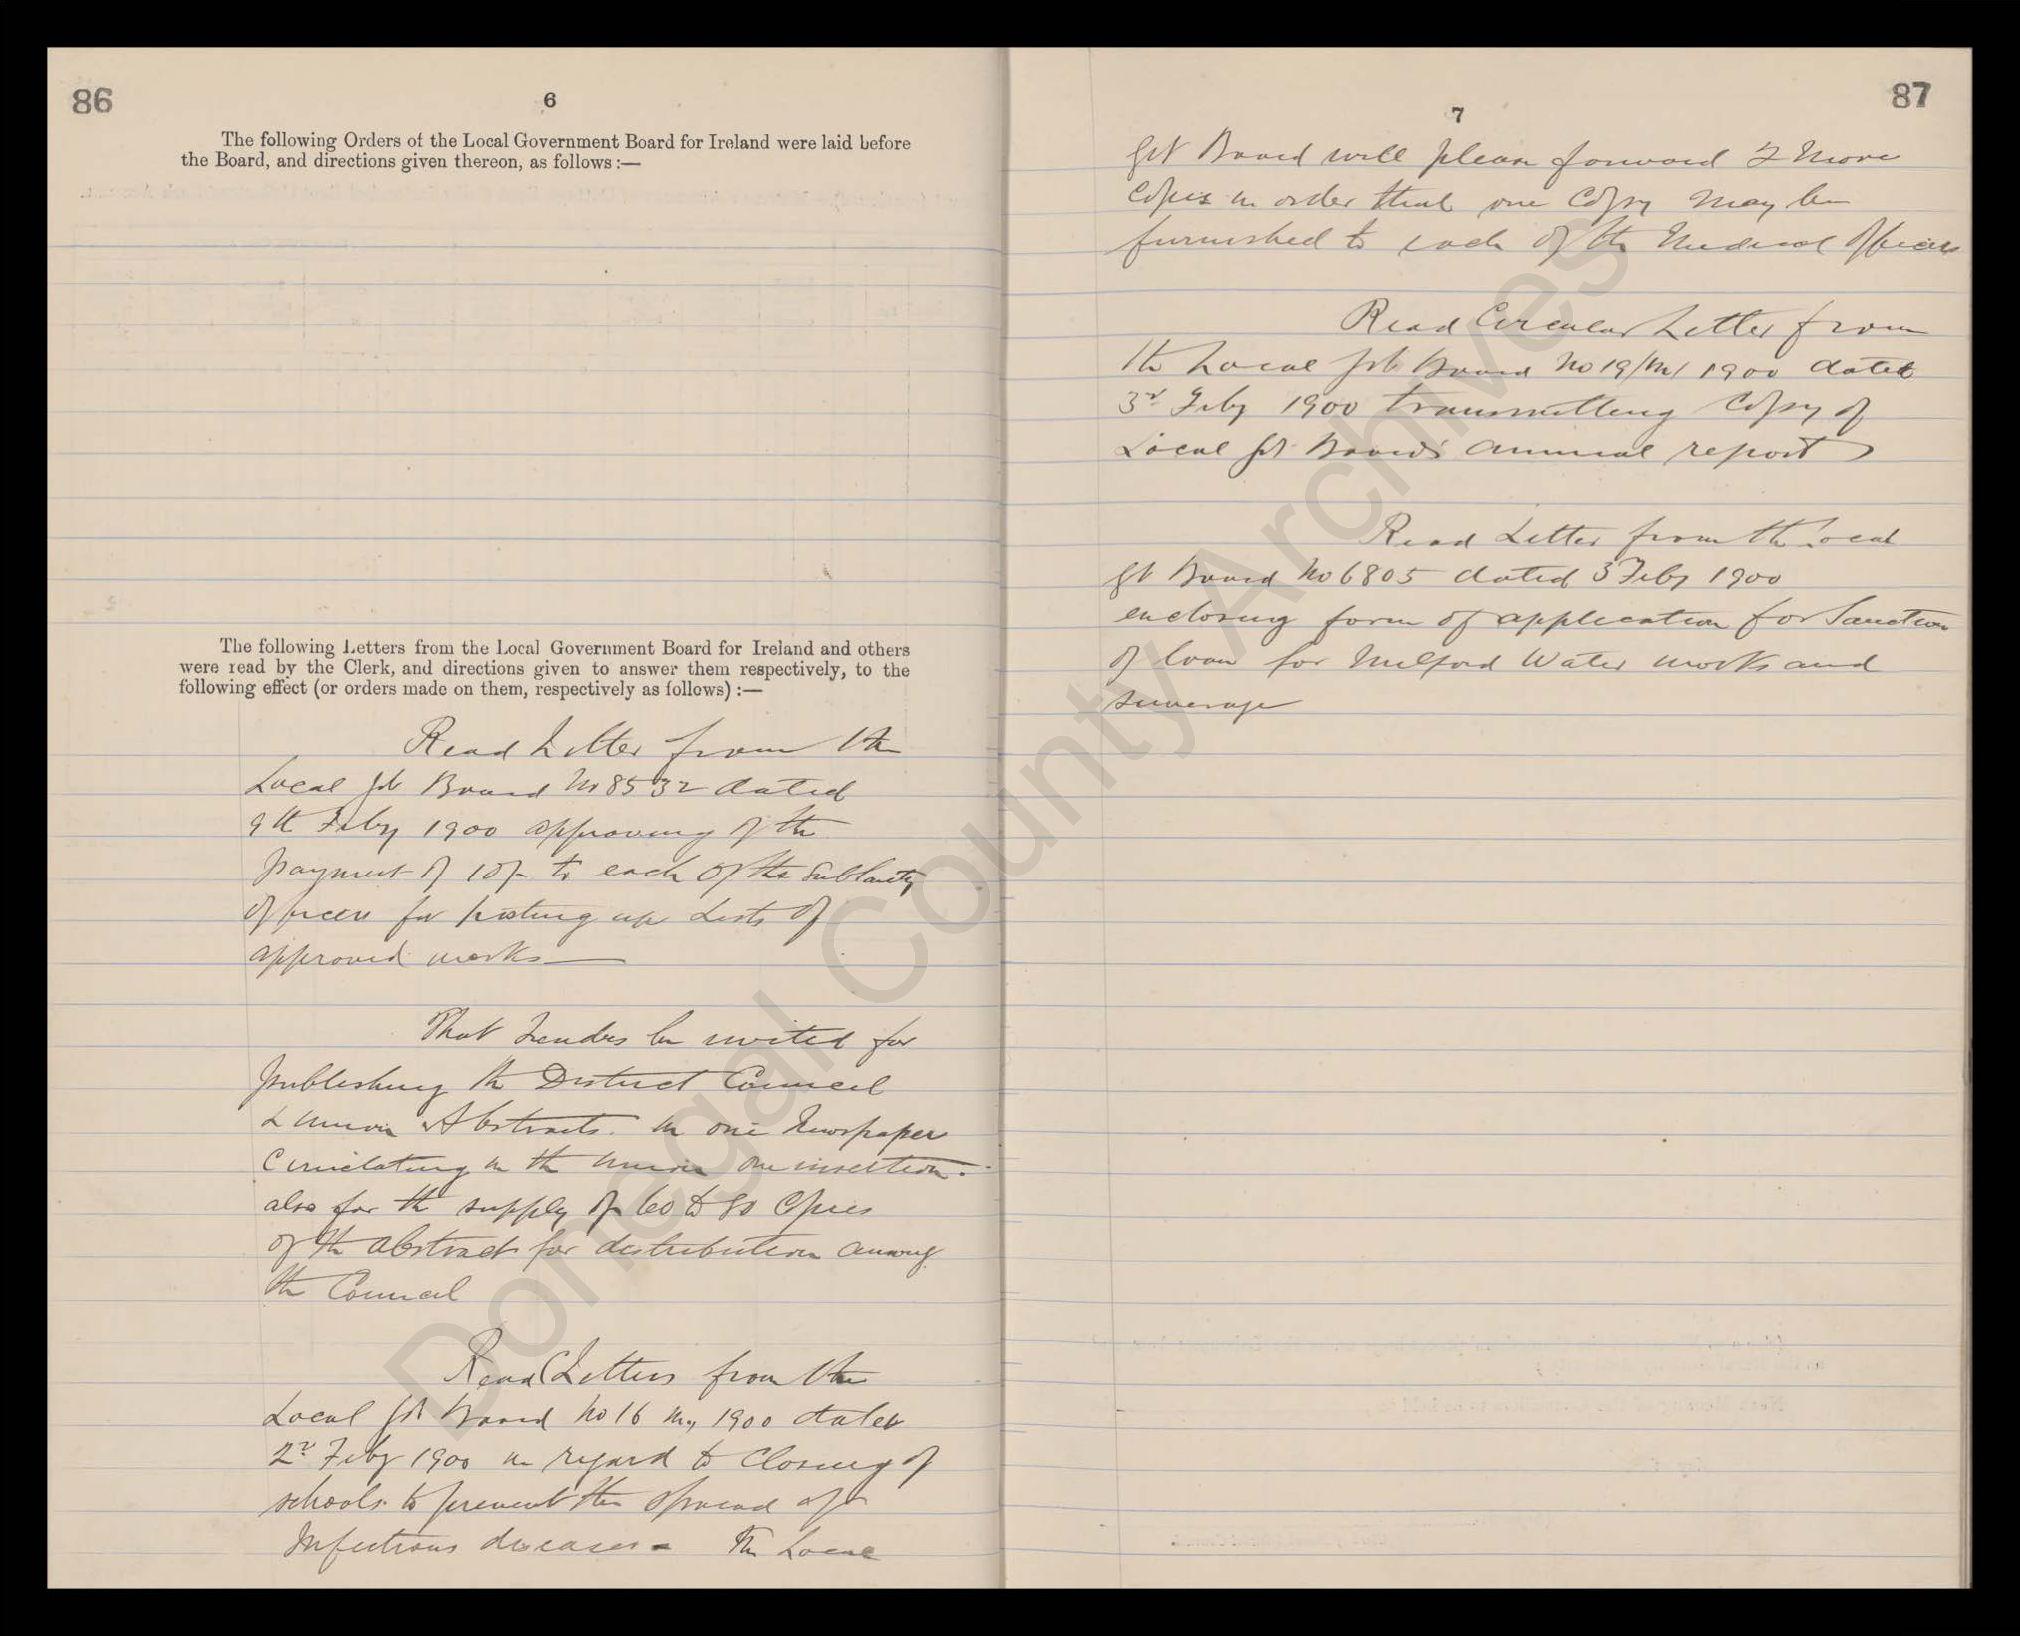 86
6
The following Orders of the Local Government Board for Ireland were laid before
the Board, and directions given thereon, as follows :—
The following Letters from the Local Government Board for Ireland and others
were read by the Clerk, and directions given to answer them respectively, to the
following effect (or orders made on them, respectively as follows) :—
Read Letter from the
Local Gt Board No 8532 dated
9th Feby 1900 approving of the
payment of 10/- to each of the Subsanity
officers for posting up Lists of
approved works —
That Tenders be invited for
publishing the District Council
& Union Abstracts in one Newspaper
Circulating in the Union one insertion.
also for the supply of 60 to 80 Copies
of the abstract for distribution among
the Council
Read Letters from the
Local Gt Board No 16 M, 1900 dated
2nd Feby 1900 in regard to Closing of
schools to prevent the spread of
Infectious diseases - The Local
87
7
Gt Board will please forward 2 more
Copies in order that one Copy may be
furnished to each of the Medical Officers
Read Circular Letter from
the Local Gt Board No 19/M/1900 dated
3rd Feby 1900 transmitting Copy of
Local Gt Board's annual report
Read Letter from the Local
Gt Board No 6805 dated 3 Feby 1900
enclosing form of application for Sanction
of loan for Milford Water works and
sewerage
Donegal County Archives